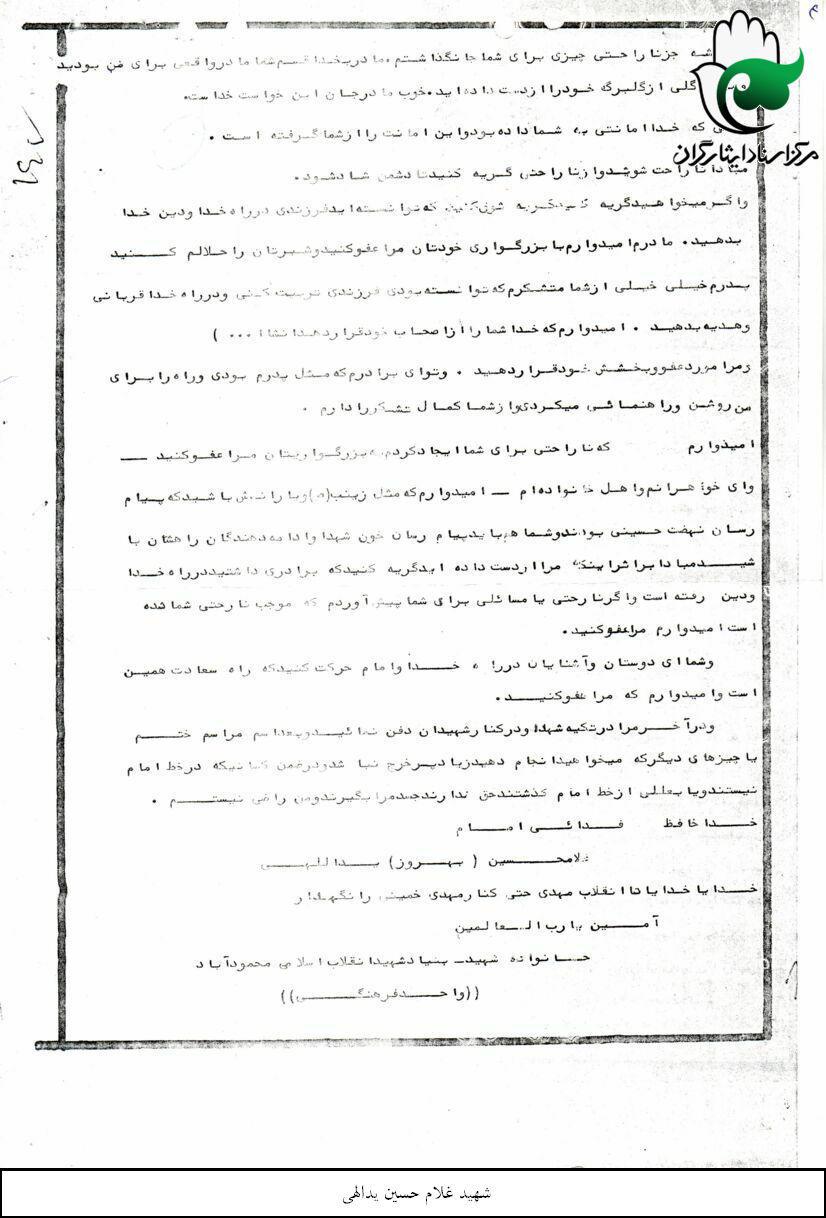 جز ناراحتی چیزی برای شما جا نگذاشتم. مادر بخدا قسم شما مادر واقعی برای من بودید
گلی از گلبرگ خود را از دست داده اید. خوب مادر جان این خواست خداست.
که خدا امانتی به شما داده بود و این امانت را از شما گرفته است.
مبادا ناراحت شوید و از ناراحتی گریه کنید تا دشمن شاد شود.
و اگر میخواهید گریه کنید گریه شوق کنید که توانسته اید فرزندی در راه خدا و دین خدا
بدهید. مادرم امیدوارم با بزرگواری خودتان مرا عفو کنید و شیرتان را حلالم کنید
پدرم خیلی خیلی از شما متشکرم که توانسته بودی فرزندی تربیت کنی و در راه خدا قربانی
و هدیه بدهید. امیدوارم که خدا شما را از اصحاب خود قرار دهد انشاا... )
و مرا مورد عفو و بخشش خود قرار دهید. و تو ای برادرم که مثل پدرم بودی و راه را برای
من روشن و راهنمائی میکردی و از شما کمال تشکر را دارم.
امیدوارم که ناراحتی برای شما ایجاد کردم به بزرگواریتان مرا عفو کنید ــ
و ای خواهرانم و اهل خانواده ام ــ امیدوارم که مثل زینب (س) و یارانش باشید که پیام
رسان نهضت حسینی بودند و شما هم باید پیام رسان خون شهدا و ادامه دهندگان راهشان با
شید مبادا برای اینکه مرا از دست داده اید گریه کنید که برادری داشتید در راه خدا
و دین رفته است و اگر ناراحتی یا مسائلی برای شما پیش آوردم که موجب ناراحتی شما شده
است امیدوارم مرا عفو کنید.
و شما ای دوستان و آشنایان در راه خدا و امام حرکت کنید که راه سعادت همین
است و امیدوارم که مرا عفو کنید.
و در آخر مرا در تکیه شهدا و در کنار شهیدان دفن نمائید و بعد اسم مراسم ختم
یا چیزهای دیگر که میخواهید انجام دهید زیاد پر خرج نباشد و در ضمن کسانیکه در خط امام
نیستند و یا بعللی از خط امام گذشتند حق ندارند جسد مرا بگیرند و من راضی نیستم.
خدا حافظ فدائی امام
غلامحسین ( بهروز ) یداللهی
خدایا خدایا تا انقلاب مهدی حتی کنار مهدی خمینی را نگهدار
آمین یا رب العالمین
خانواده شهید ـ بنیاد شهید انقلاب اسلامی محمودآباد
((واحد فرهنگی))
مرکز اسناد ایثارگران
شهید غلام حسین یدالهی